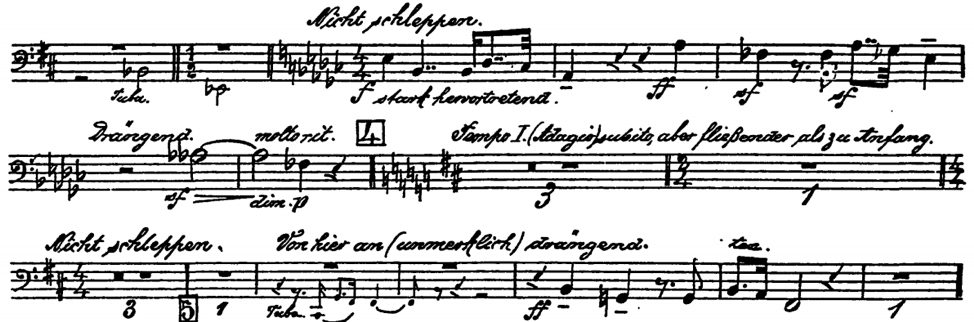 Nicht schleppen.
Tuba.
f stark hervortretend. ff sf sf
Drängend. molto rit. 4 Tempo I. (Adagio) subito, aber fließender als zu Anfang.
sf dim. p 3 1
Nicht schleppen. Von hier an (unmerklich) drängend.
3 5 1 Tuba. ff 1